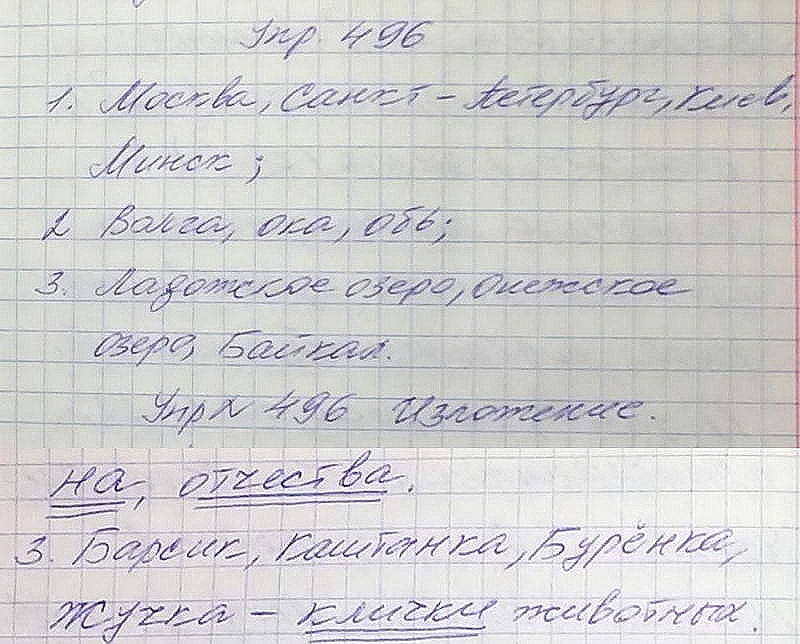 Упр. 496
1. Москва, Санкт-Петербург, Киев,
Минск;
2 Волга, Ока, Обь;
3. Ладожское озеро, Онежское
озеро, Байкал.
Упр 496 Изложение.
на, отчества.
3. Барсик, Каштанка, Бурёнка,
Жучка – клички животных.